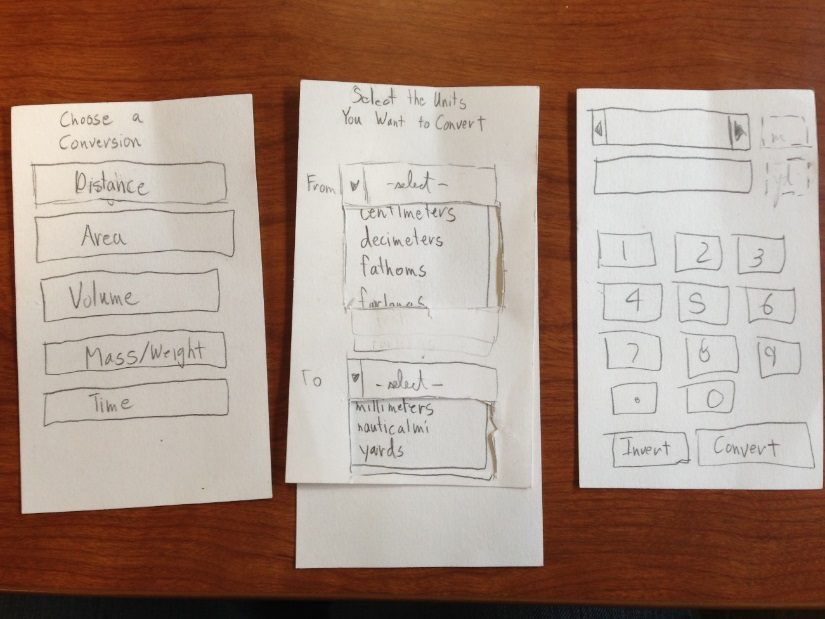 Choose a
Conversion
Distance
Area
Volume
Mass/Weight
Time
Select the Units
You Want to Convert
From
-select-
centimeters
decimeters
fathoms
furlongs
To
-select-
millimeters
nautical mi
yards
1 2 3
4 5 6
7 8 9
. 0
Invert Convert